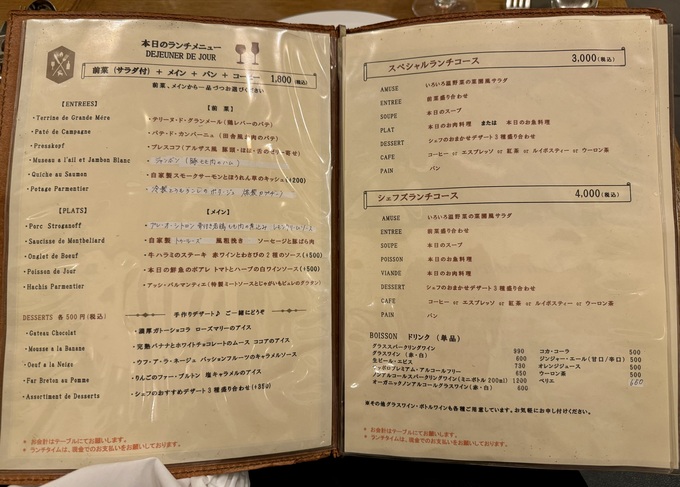 本日のランチメニュー
DEJEUNER DE JOUR
前菜（サラダ付）＋ メイン ＋ パン ＋ コーヒー 1,800（税込）
前菜、メインから一品づつお選びください
【ENTREES】
【前 菜】
・Terrine de Grande Mére
・テリーヌ・ド・グランメール（鶏レバーのパテ）
・Paté de Campagne
・パテ・ド・カンパーニュ（田舎風お肉のパテ）
・Presskopf
・プレスコフ（アルザス風 豚頭・ほほ・舌のゼリー寄せ）
・Museau a l'ail et Jambon Blanc
・ジャンボン（豚もも肉のハム）
・Quiche au Saumon
・自家製スモークサーモンとほうれん草のキッシュ(+200)
・Potage Parmentier
【PLATS】
【メイン】
・Porc Stroganoff
・Saucisse de Montbeliard
・自家製 トゥールーズ 風粗挽き ソーセージと豚ばら肉
・Onglet de Boeuf
・牛ハラミのステーキ 赤ワインとわさびの2種のソース(+500)
・Poisson du Jour
・本日の鮮魚のポアレ トマトとハーブの白ワインソース(+500)
・Hachis Parmentier
・アッシ・パルマンティエ（特製ミートソースとじゃがいもピュレのグラタン）
DESSERTS 各500円(税込)
手作りデザート♪ ご一緒にどうぞ
・Gateau Chocolat
・濃厚ガトーショコラ ローズマリーのアイス
・Mousse a la Banane
・完熟バナナとホワイトチョコレートのムース ココアのアイス
・Oeuf a la Neige
・ウフ・ア・ラ・ネージュ パッションフルーツのキャラメルソース
・Far Breton au Pomme
・りんごのファー・ブルトン 塩キャラメルのアイス
・Assortiment de Desserts
・シェフのおすすめデザート3種盛り合わせ(+350)
＊ お会計はテーブルにてお願いします。
＊ ランチタイムは、現金でのお支払いをお願いしております。
スペシャルランチコース 3,000（税込）
AMUSE いろいろ温野菜の菜園風サラダ
ENTREE 前菜盛り合わせ
SOUPE 本日のスープ
PLAT 本日のお肉料理 または 本日のお魚料理
DESSERT シェフのおまかせデザート3種盛り合わせ
CAFE コーヒー or エスプレッソ or 紅茶 or ルイボスティー or ウーロン茶
PAIN パン
シェフズランチコース 4,000（税込）
AMUSE いろいろ温野菜の菜園風サラダ
ENTREE 前菜盛り合わせ
SOUPE 本日のスープ
POISSON 本日のお魚料理
VIANDE 本日のお肉料理
DESSERT シェフのおまかせデザート3種盛り合わせ
CAFE コーヒー or エスプレッソ or 紅茶 or ルイボスティー or ウーロン茶
PAIN パン
BOISSON ドリンク（単品）
グラススパークリングワイン 990
グラスワイン（赤・白） 600
生ビール・エビス 730
サッポロプレミアム・アルコールフリー 650
ノンアルコールスパークリングワイン(ミニボトル 200ml) 1200
オーガニックノンアルコールグラスワイン(赤・白) 600
コカ・コーラ 500
ジンジャー・エール（甘口/辛口） 500
オレンジジュース 500
ウーロン茶 500
ペリエ 550
＊その他グラスワイン・ボトルワインも各種ご用意しています。お気軽にお申し付けください。
＊ お会計はテーブルにてお願いします。
＊ ランチタイムは、現金でのお支払いをお願いしております。